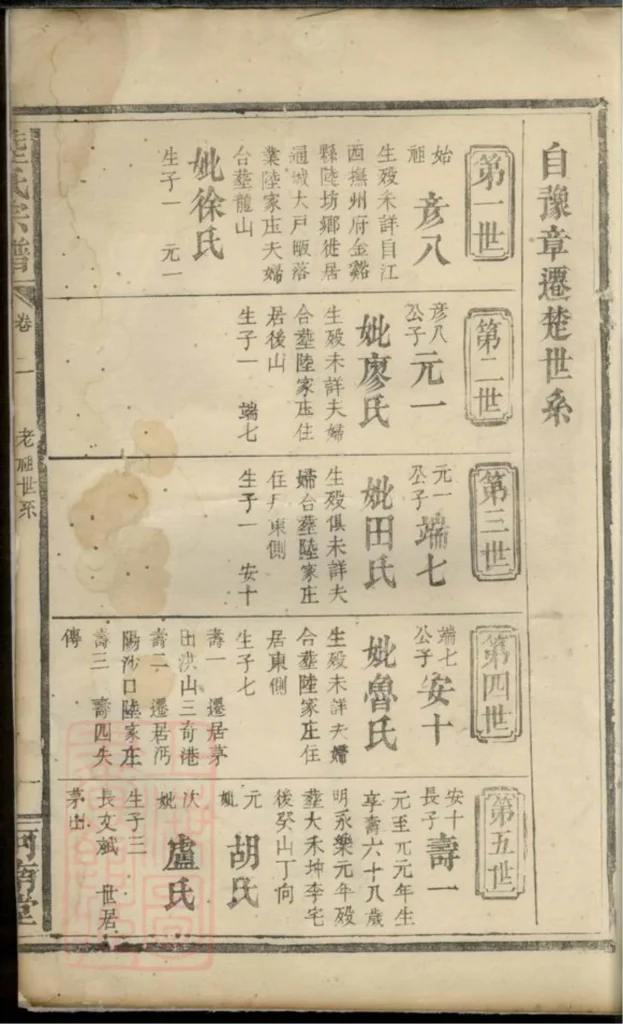 自豫章遷楚世系
第一世
始祖
彦八
生殁未詳自江
西撫州府金谿
縣陸坊鄉徙居
通城大戶畈落
業陸家庄夫婦
合塟龍山
妣徐氏
生子一 元一
第二世
彦八公子
元一
妣廖氏
生殁未詳夫婦
合塟陸家庄住
居後山
生子一 端七
第三世
元一公子
端七
妣田氏
生殁俱未詳夫
婦合塟陸家庄
住 東側
生子一 安十
第四世
端七公子
安十
妣魯氏
生殁未詳夫婦
合塟陸家庄住
居東側
生子七
壽一 遷居茅
田洪山三奇港
壽二 遷居沔
陽沙口陸家庄
壽三 壽四失
傳
第五世
安十長子
壽一
元至元元年生
享壽六十八歲
明永樂元年殁
塟大禾坤李宅
後癸山丁向
元妣
胡氏
次妣
盧氏
生子三
長文斌 世居
茅田
陸氏宗譜
卷二
老祖世系
一
河南堂